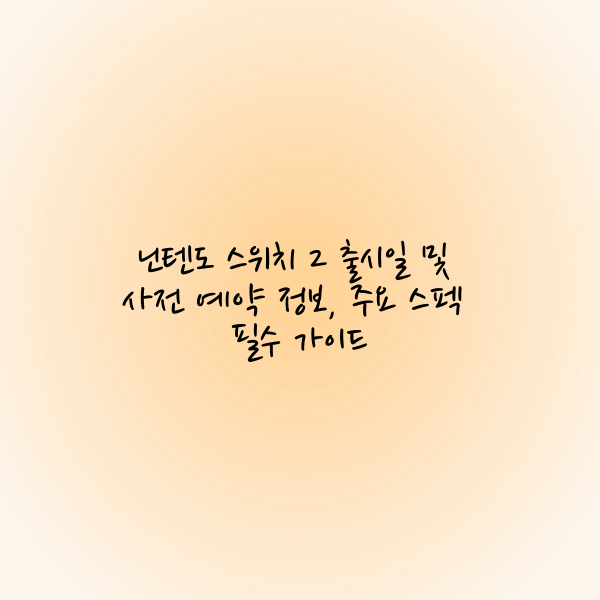 닌텐도 스위치 2 출시일 및
사전 예약 정보, 주요 스펙
필수 가이드